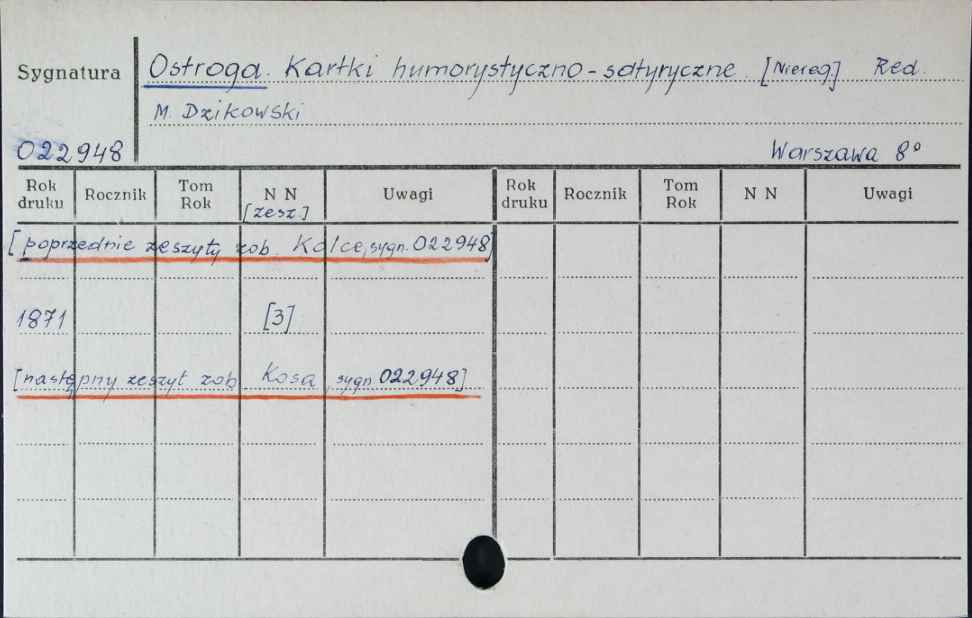 Sygnatura
Ostroga. Kartki humorystyczno-satyryczne. [Niereg] Red.
M. Dzikowski
022948
Warszawa 8°
Rok druku Rocznik Tom Rok N N [zesz.] Uwagi Rok druku Rocznik Tom Rok N N Uwagi
[poprzednie zeszyty zob. Kolce, sygn. 022948]
1871 [3]
[następny zeszyt zob. Kosa, sygn 022948]